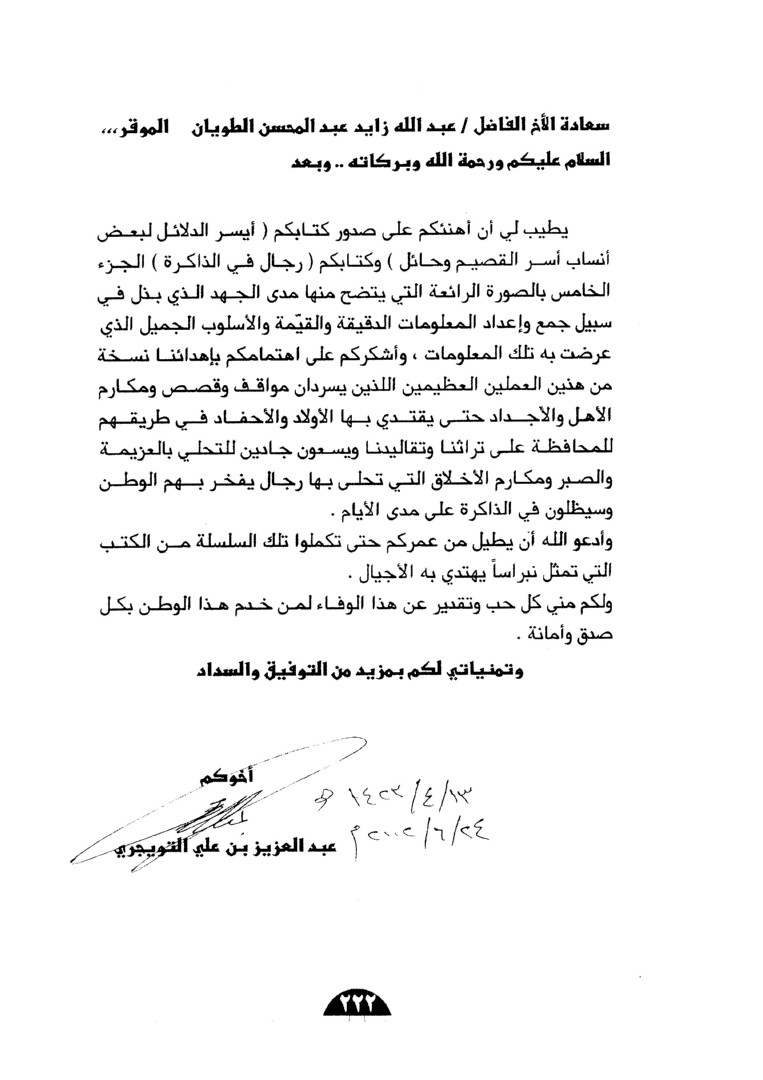 سعادة الأخ الفاضل / عبد الله زايد عبد المحسن الطويان الموقر ,,,
السلام عليكم ورحمة الله وبركاته .. وبعد
يطيب لي أن أهنئكم على صدور كتابكم ( أيسر الدلائل لبعض
أنساب أسر القصيم وحائل ) وكتابكم ( رجال في الذاكرة ) الجزء
الخامس بالصورة الرائعة التي يتضح منها مدى الجهد الذي بذل في
سبيل جمع وإعداد المعلومات الدقيقة والقيّمة والأسلوب الجميل الذي
عرضت به تلك المعلومات ، وأشكركم على اهتمامكم بإهدائنا نسخة
من هذين العملين العظيمين اللذين يسردان مواقف وقصص ومكارم
الأهل والأجداد حتى يقتدي بها الأولاد والأحفاد في طريقهم
للمحافظة على تراثنا وتقاليدنا ويسعون جادين للتحلي بالعزيمة
والصبر ومكارم الأخلاق التي تحلى بها رجال يفخر بهم الوطن
وسيظلون في الذاكرة على مدى الأيام .
وأدعو الله أن يطيل من عمركم حتى تكملوا تلك السلسلة من الكتب
التي تمثل نبراساً يهتدي به الأجيال .
ولكم مني كل حب وتقدير عن هذا الوفاء لمن خدم هذا الوطن بكل
صدق وأمانة .
وتمنياتي لكم بمزيد من التوفيق والسداد
أخوكم
١٤٢٣/٤/١٣ هـ
عبد العزيز بن علي التويجري
٢٠٠٢/٦/٢٤ م
٢٢٢